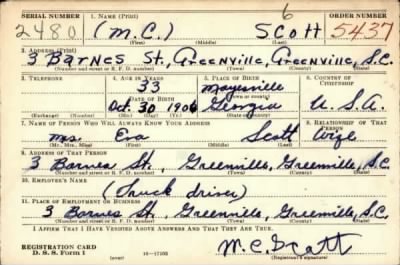 SERIAL NUMBER 1. NAME (Print) ORDER NUMBER
6
2480 (M.C.) Scott 5437
(First) (Middle) (Last)
2. ADDRESS (Print)
3 Barnes St., Greenville, Greenville, S.C.
(Number and street or R. F. D. number) (Town) (County) (State)
3. TELEPHONE 4. AGE IN YEARS 5. PLACE OF BIRTH 6. COUNTRY OF CITIZENSHIP
33 Maysville
DATE OF BIRTH
Oct 30 1906 Georgia U.S.A.
(Exchange) (Number) (Mo.) (Day) (Yr.) (State or country)
7. NAME OF PERSON WHO WILL ALWAYS KNOW YOUR ADDRESS 8. RELATIONSHIP OF THAT PERSON
Mrs. Eva Scott Wife
(Mr., Mrs., Miss) (First) (Middle) (Last)
9. ADDRESS OF THAT PERSON
3 Barnes St., Greenville, Greenville, S.C.
(Number and street or R. F. D. number) (Town) (County) (State)
10. EMPLOYER'S NAME
(Truck driver)
11. PLACE OF EMPLOYMENT OR BUSINESS
3 Barnes St., Greenville, Greenville, S.C.
(Number and street or R. F. D. number) (Town) (County) (State)
I AFFIRM THAT I HAVE VERIFIED ABOVE ANSWERS AND THAT THEY ARE TRUE.
REGISTRATION CARD M.C. Scott
D. S. S. Form 1 16—17105 (Registrant's signature)